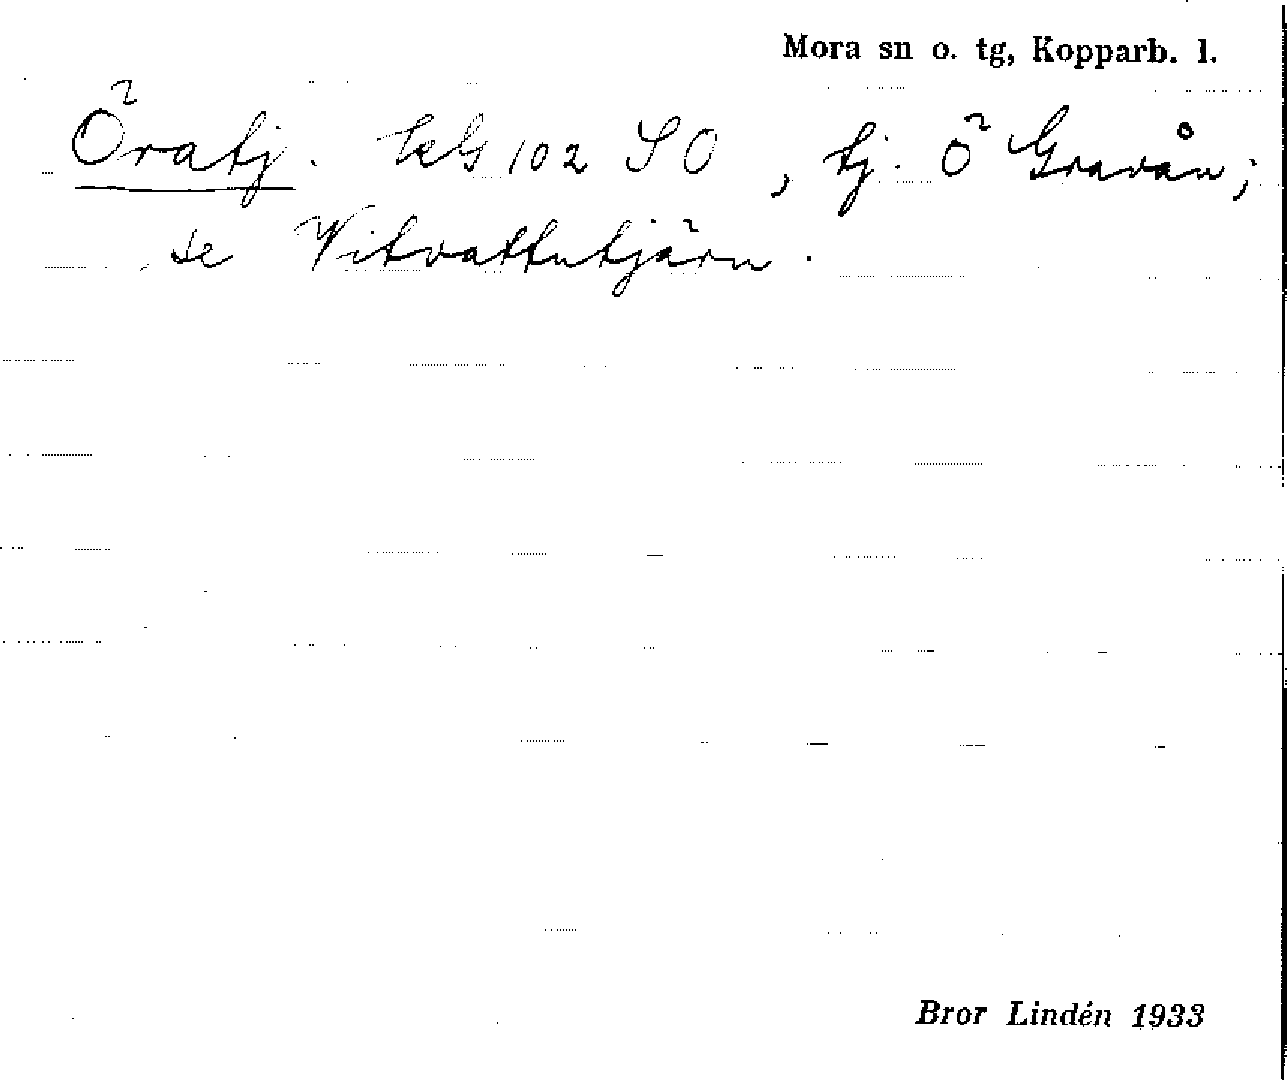 Mora sn o. tg, Kopparb. l.
Öratj. tr. 102 SO, tj. Ö Gravån;
se Vitvattutjärn.
Bror Lindén 1933